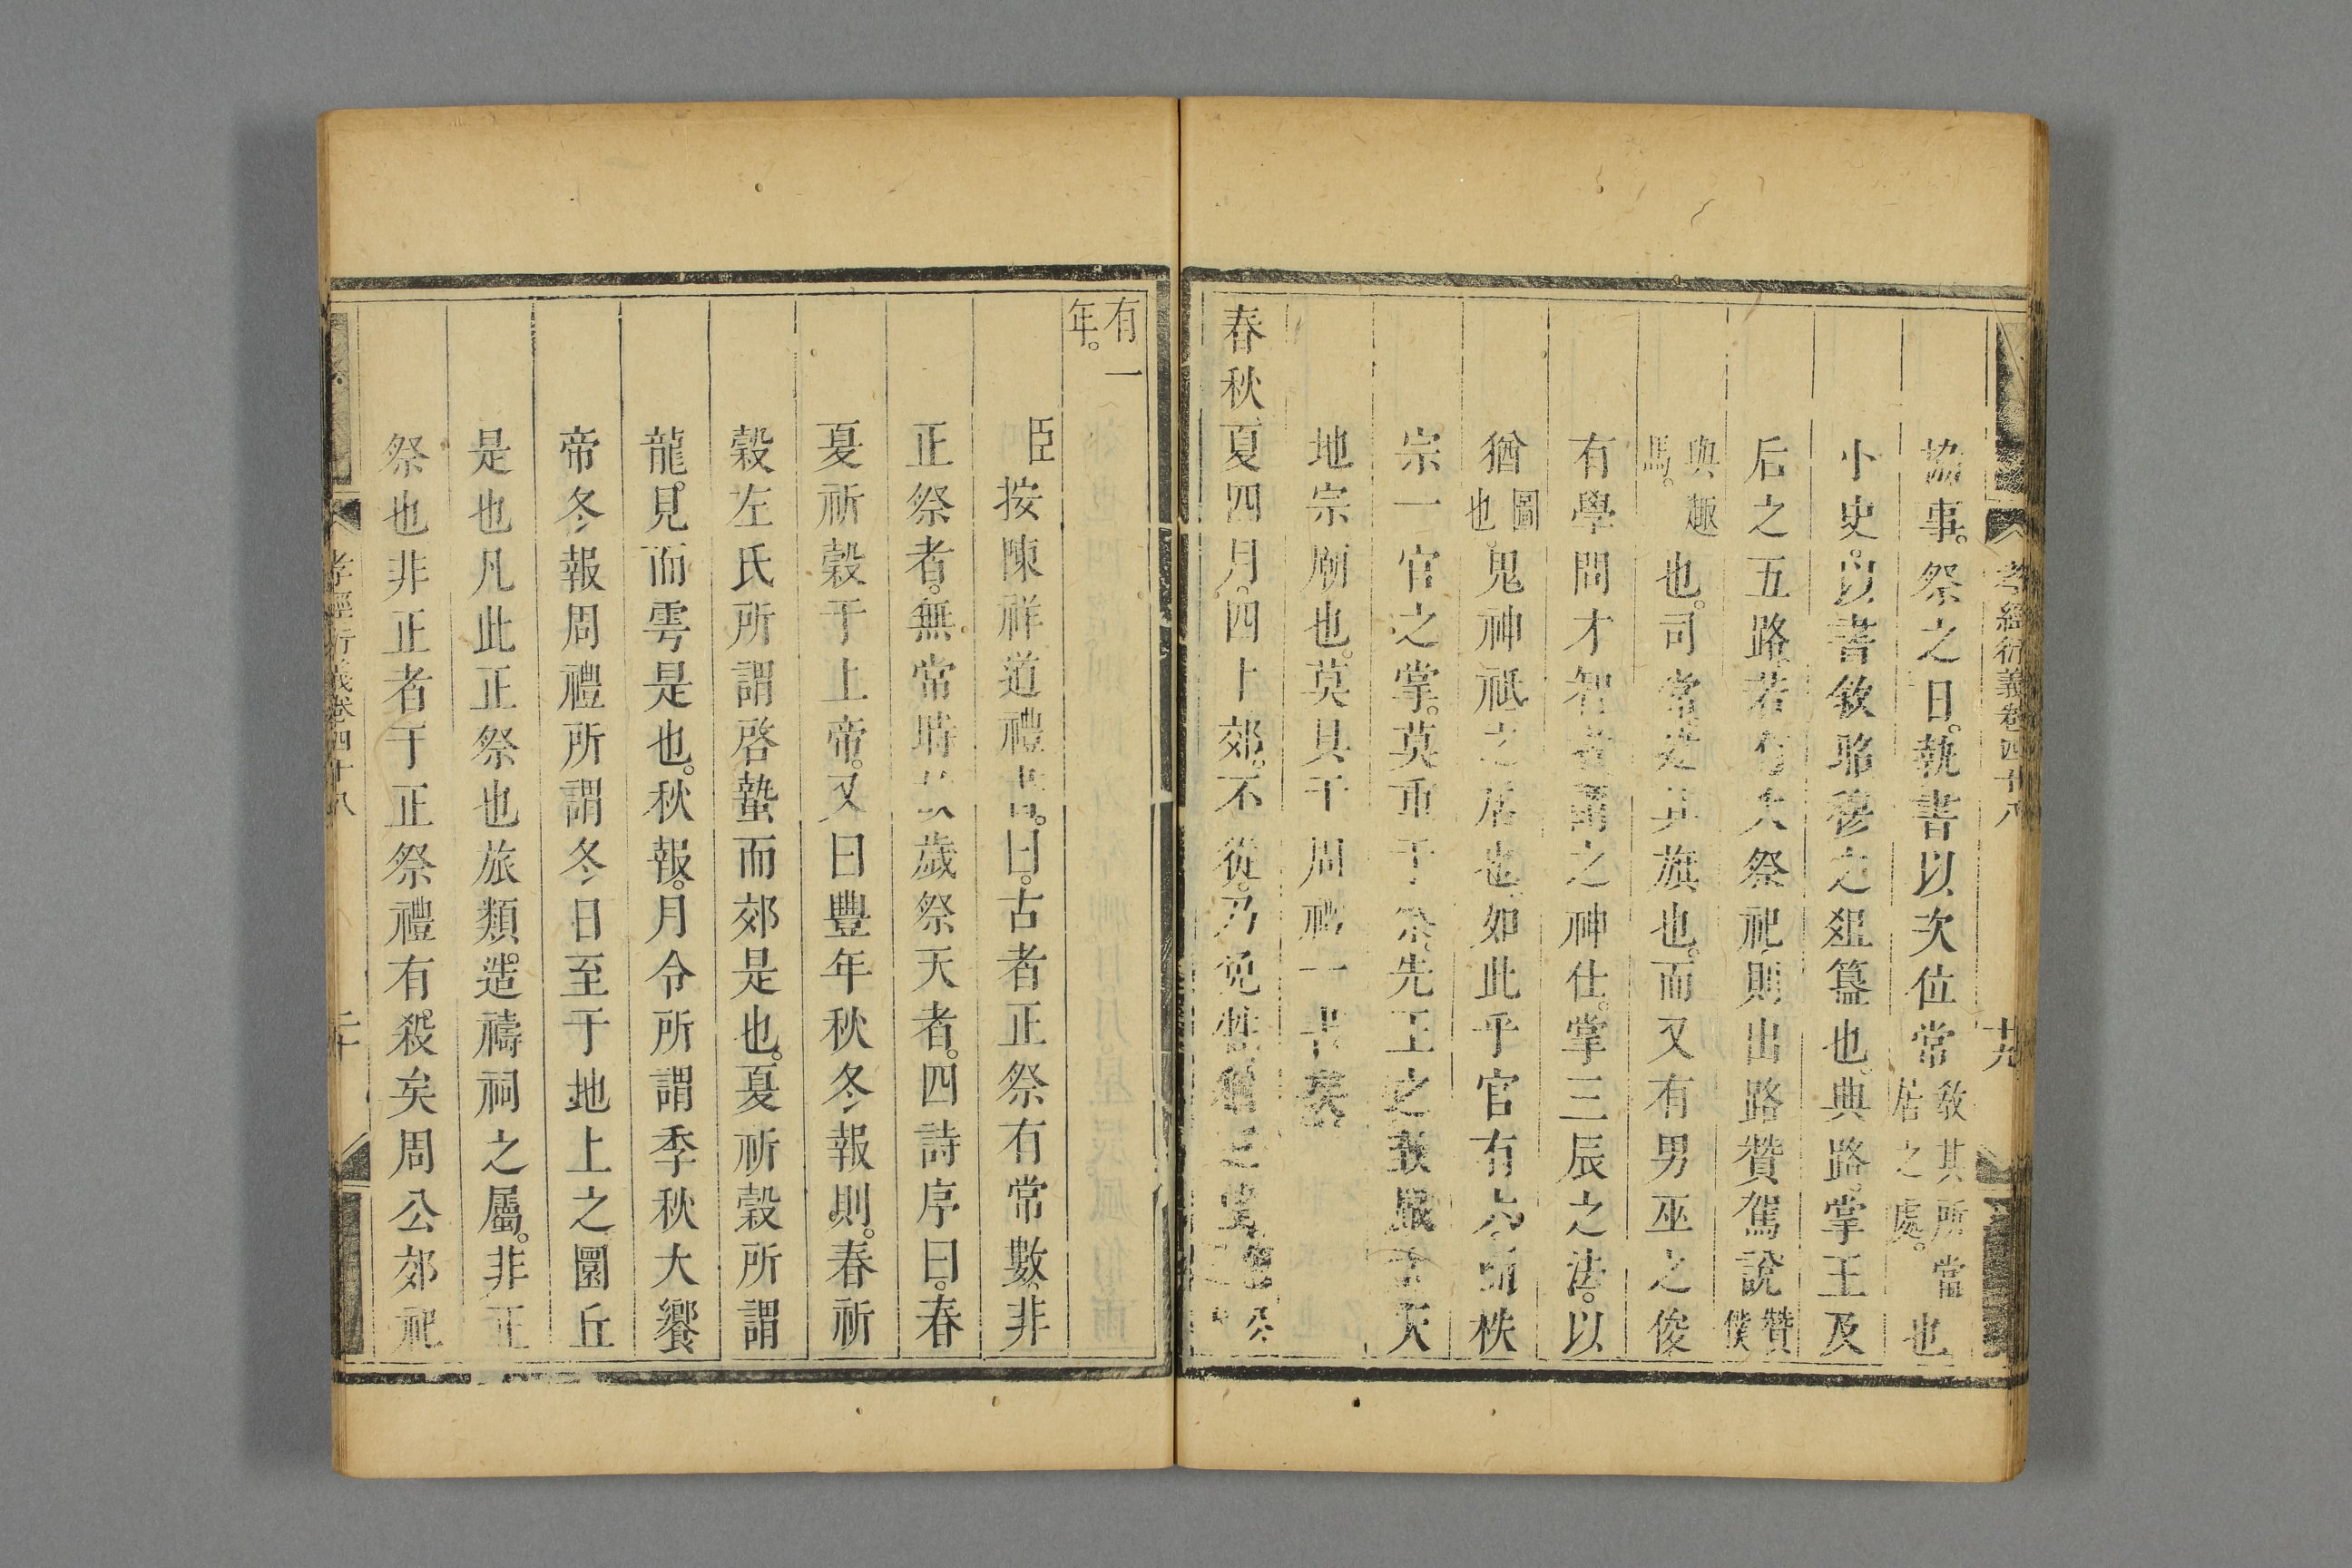 孝經衍義卷四十八 十九
協事。祭之日。執書以次位常敎其所當居之處。也
小史。以書敘昭穆之俎簋也。典路。掌王及
后之五路。若有大祭祀。則出路贊駕說贊僕
與趣馬。也。司常建其旗也。而又有男巫之俊
有學問才智者謂之神仕。掌三辰之法。以
猶圖也。鬼神祇之居也。如此乎官有六而秩
宗一官之掌。莫重于祭。先王之敬嚴天
地宗廟也。莫具于周禮一書矣
春秋夏四月。四卜郊。不從。乃免牲猶三望僖公三
有一年。
臣按陳祥道禮書。曰。古者正祭有常數。非
正祭者。無常時故歲祭天者。四詩序曰。春
夏祈穀于上帝。又曰豐年秋冬報則。春祈
穀左氏所謂啓蟄而郊是也。夏祈穀所謂
龍。見而雩是也。秋報。月令所謂季秋大饗
帝冬報周禮所謂冬日至于地上之圜丘
是也凡此正祭也旅類。造禱祠之屬。非正
祭也非正者于正祭禮有。殺矣周公郊祀
孝經衍義卷四十八 二十